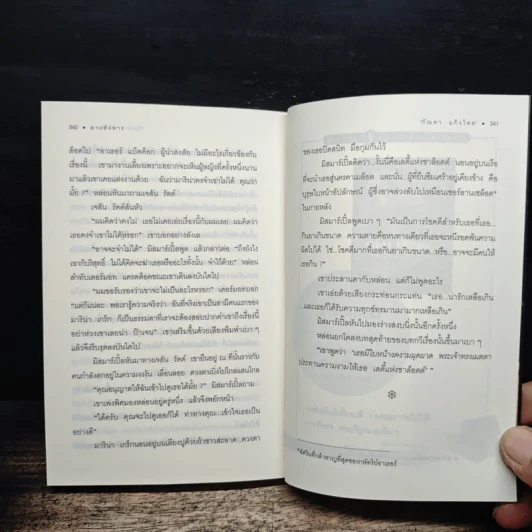 340 • มารสังหาร
ต็อคไป "อาเธอร์ แบ๊ดค็อก ผู้น่าสงสัย ไม่มีอะไรเกี่ยวข้องกับ
เรื่องนี้ เขามางานเลี้ยงเพราะอยากจะเห็นผู้หญิงที่ครั้งหนึ่งนาน
มาแล้วเขาเคยแต่งงานด้วย ฉันว่ามารีน่าคงจำเขาไม่ได้ คุณว่า
มั้ย" หล่อนหันมาถามเจสัน รัดด์
เจสัน รัดด์สั่นหัว
"ผมคิดว่าคงไม่ เธอไม่เคยเอ่ยเรื่องนี้กับผมเลย ผมคิดว่า
เธอคงจำเขาไม่ได้หรอก" เขาบอกอย่างลังเล
"อาจจะจำไม่ได้" มิสมาร์เปิ้ลพูด แล้วกล่าวต่อ "ถึงยังไง
เขาก็บริสุทธิ์ ไม่ได้คิดจะฆ่าเธอหรืออะไรทั้งนั้น จำไว้ด้วย" หล่อน
สำทับเดอร์มอท แครดด็อคขณะเขาเดินลงบันไดไป
"ผมขอรับรองว่าเขาจะไม่เป็นอะไรหรอก" เดอร์มอทบอก
"แต่ก็แน่ละ พอเรารู้ความจริงว่า อันที่จริงเขาเป็นสามีคนแรกของ
มารีน่า เกร็ก ก็เป็นธรรมดาที่เราจะต้องสอบปากคำเขาถึงเรื่องนี้
อย่าห่วงเขาเลยน่า ป้าเจน" เขาเสริมขึ้นด้วยเสียงพึมพำเบา ๆ
แล้วจึงรีบรุดลงบันไดไป
มิสมาร์เปิ้ลหันมาทางเจสัน รัดด์ เขายืนอยู่ ณ ที่นั้นราวกับ
คนกำลังตกอยู่ในความงงงัน เลื่อนลอย ดวงตาเบิ่งไปไกลแสนไกล
"คุณอนุญาตให้ฉันเข้าไปดูเธอได้มั้ย ?" มิสมาร์เปิ้ลถาม
เขาเพ่งพิศมองหล่อนอยู่ครู่หนึ่ง แล้วจึงพยักหน้า
"ได้ครับ คุณจะไปดูเธอก็ได้ ท่าทางคุณ...เข้าใจเธอเป็น
อย่างดี"
มารีน่า เกร็กนอนอยู่บนเตียงปูด้วยผ้าขาวสะอาด ดวงตา
กัณหา แก้วไทย • 341
ของเธอปิดสนิท มือกุมกันไว้
มิสมาร์เปิ้ลคิดว่า...งั้นนี่คือเลดี้แห่งชาล็อตต์ นอนอยู่บนเรือ
ที่จะนำเธอสู่นครคาเมล็อต และนั่น ผู้ที่ยืนซึมเศร้าอยู่เคียงข้าง คือ
บุรุษใบหน้าอัปลักษณ์ ผู้ซึ่งอาจล่วงลับไปเหมือนเซอร์ลานเซล็อต*
ในภายหลัง
มิสมาร์เปิ้ลพูดเบา ๆ "มันเป็นการโชคดีสำหรับเธอที่เธอ...
กินยาเกินขนาด ความตายคือหนทางเดียวที่เธอจะหนีรอดพ้นความ
ผิดไปได้ ใช่...โชคดีมากที่เธอกินยาเกินขนาด...หรือ...อาจจะมีคนให้
เธอกิน ?"
เขาประสานตากับหล่อน แต่ก็ไม่พูดอะไร
เขาเอ่ยด้วยเสียงกระท่อนกระแท่น "เธอ...น่ารักเหลือเกิน
...และเธอก็ได้รับความทุกข์ทรมานมามากเหลือเกิน"
มิสมาร์เปิ้ลหันไปมองร่างสงบนิ่งนั้นอีกครั้งหนึ่ง
หล่อนยกโคลงบทสุดท้ายของบทกวีเรื่องนั้นขึ้นมาเบา ๆ
"เขาพูดว่า 'เธอมีใบหน้างดงามผุดผาด พระเจ้าทรงเมตตา
ประทานความงามให้เธอ เลดี้แห่งชาล็อตต์' "
*อัศวินที่กล้าหาญที่สุดของกษัตริย์อาเธอร์